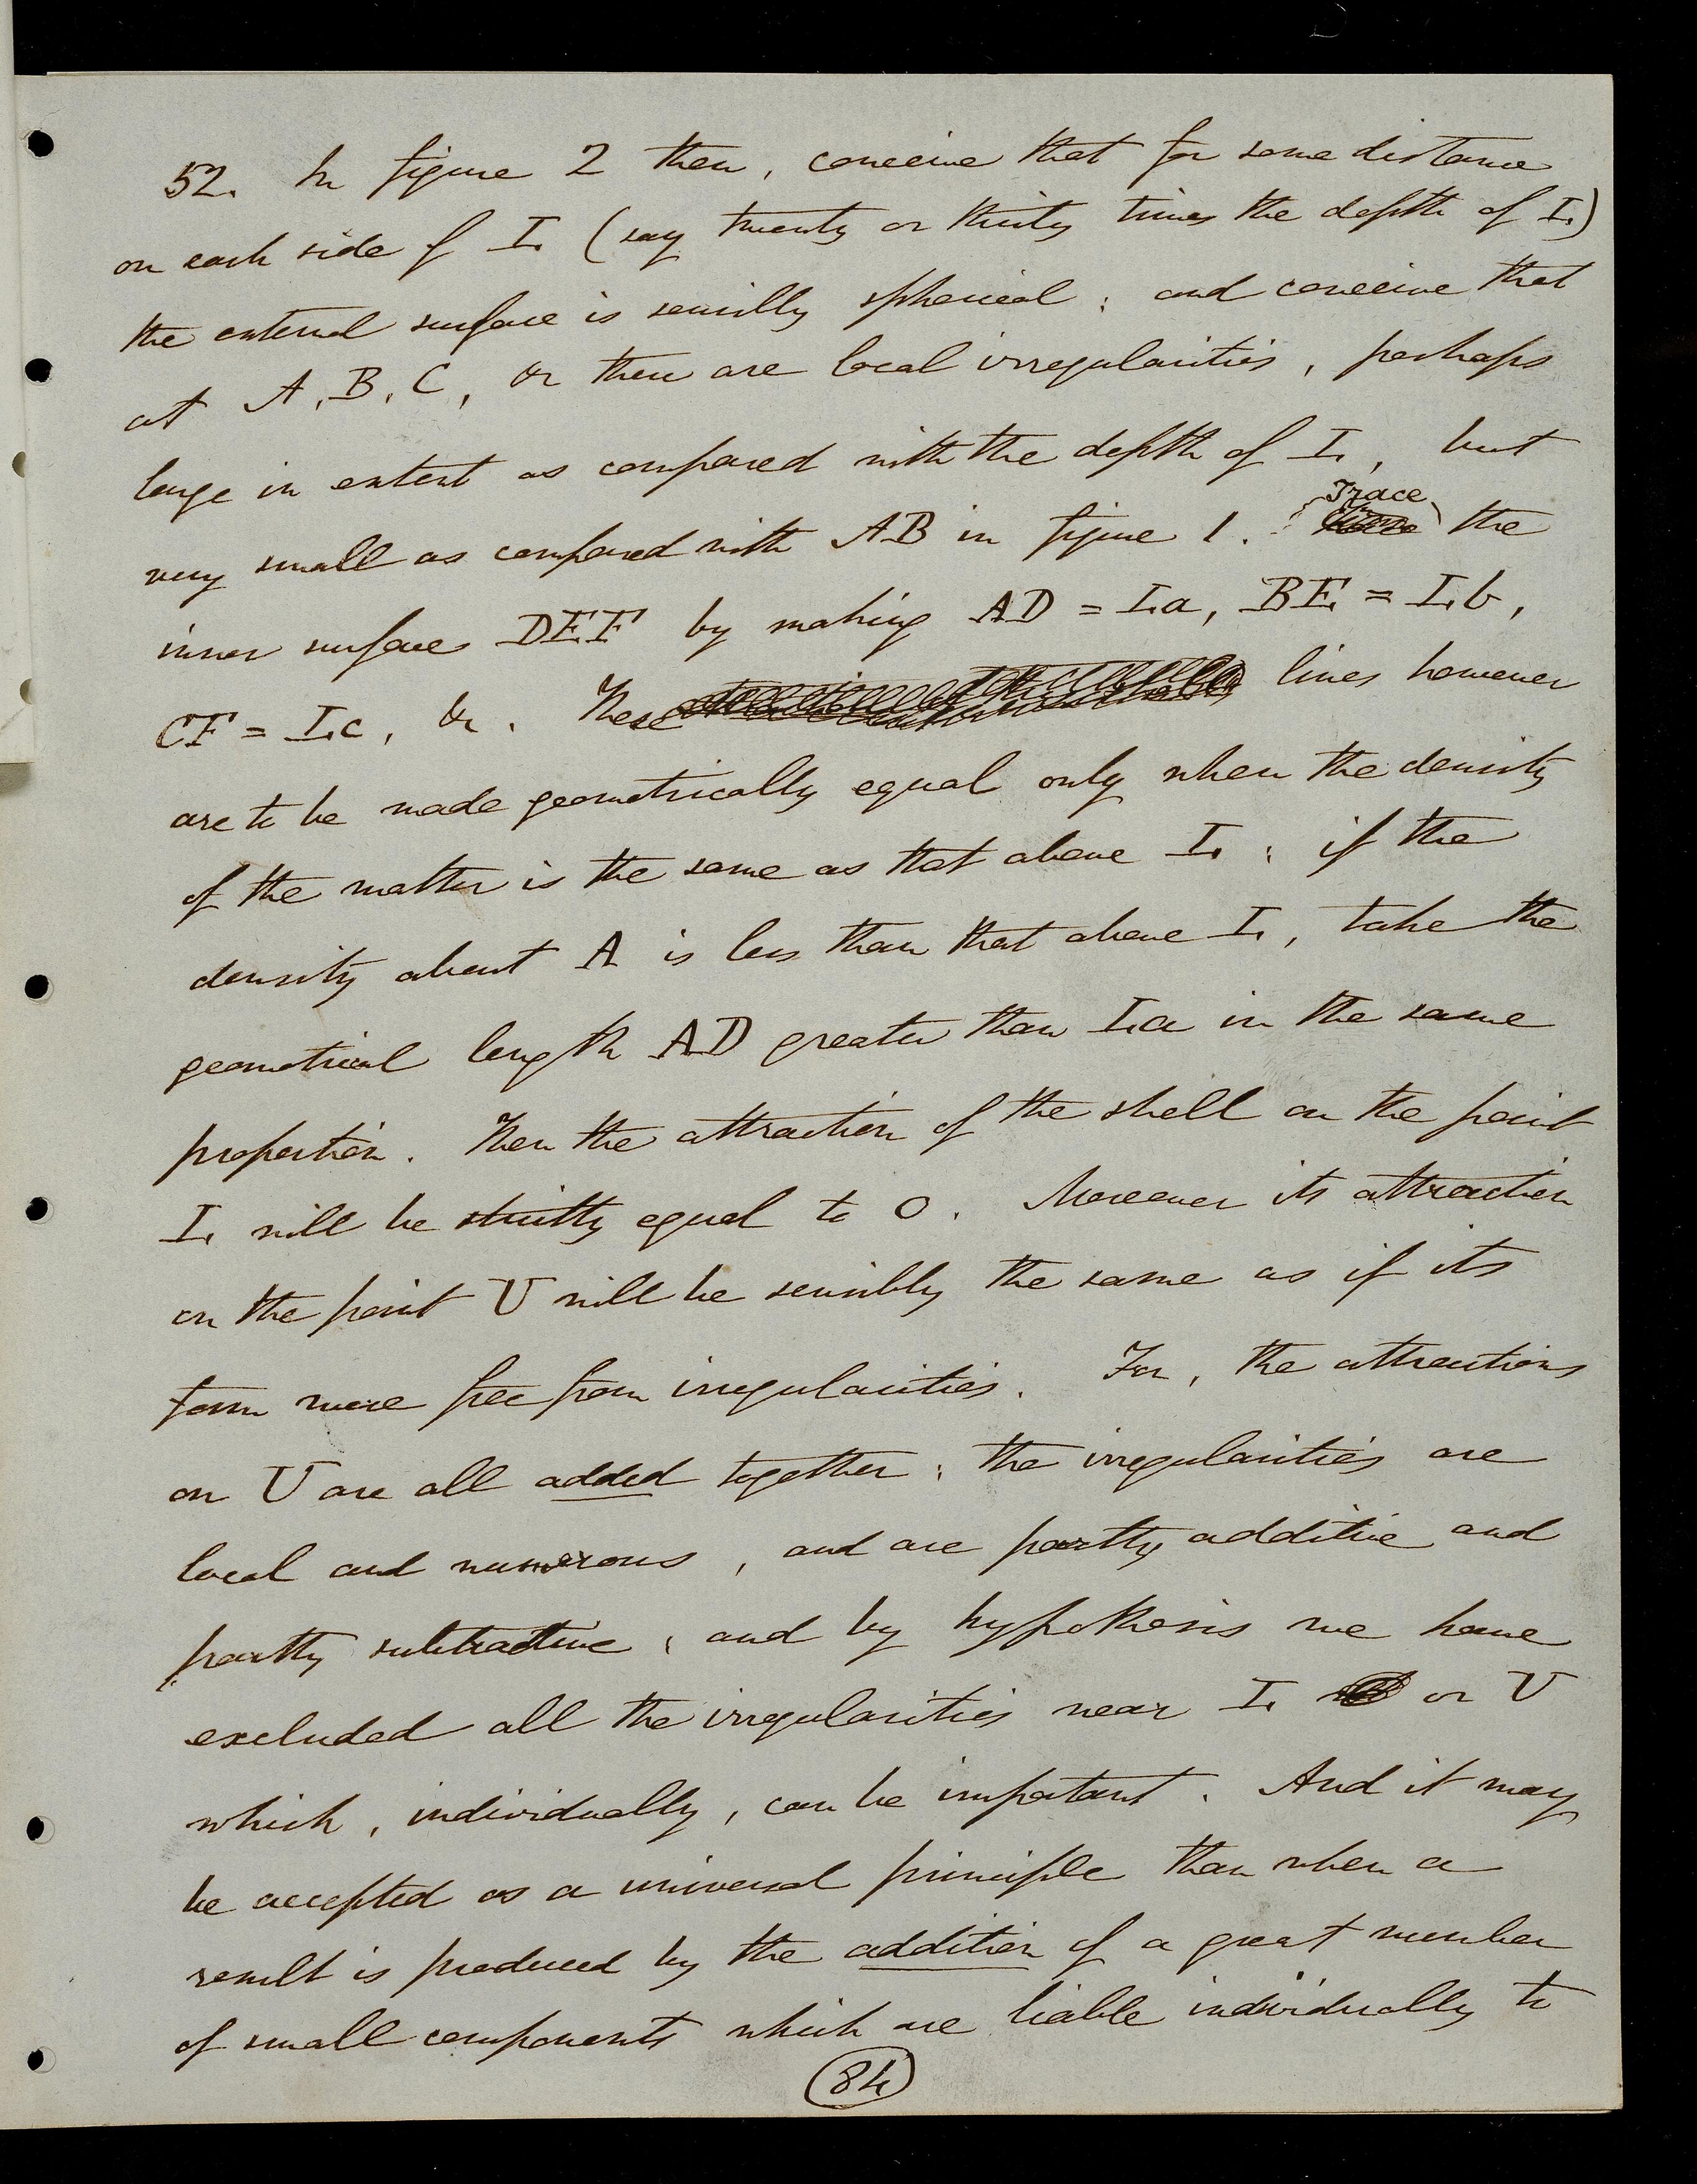 52. In figure 2 then, conceive that for some distance
on each side of L (say twenty or thirty times the depth of L)
the external surface is sensibly spherical; and conceive that
at A, B, C, &c there are local irregularities, perhaps
large in extent as compared with the depth of L, but
very small as compared with AB in figure 1. Trace the
inner surface DEF by making AD = La, BE = Lb,
CF = Lc, &c. These lines however
are to be made geometrically equal only when the density
of the matter is the same as that above L; if the
density about A is less than that above L, take the
geometrical length AD greater than La in the same
proportion. Then the attraction of the shell on the point
L will be strictly equal to 0. Moreover its attraction
on the point U will be sensibly the same as if its
form were free from irregularities. For, the attractions
on U are all added together; the irregularities are
local and numerous, and are partly additive and
partly subtractive; and by hypothesis we have
excluded all the irregularities near L or U
which, individually, can be important. And it may
be accepted as a universal principle than when a
result is produced by the addition of a great number
of small components which are liable individually to
84